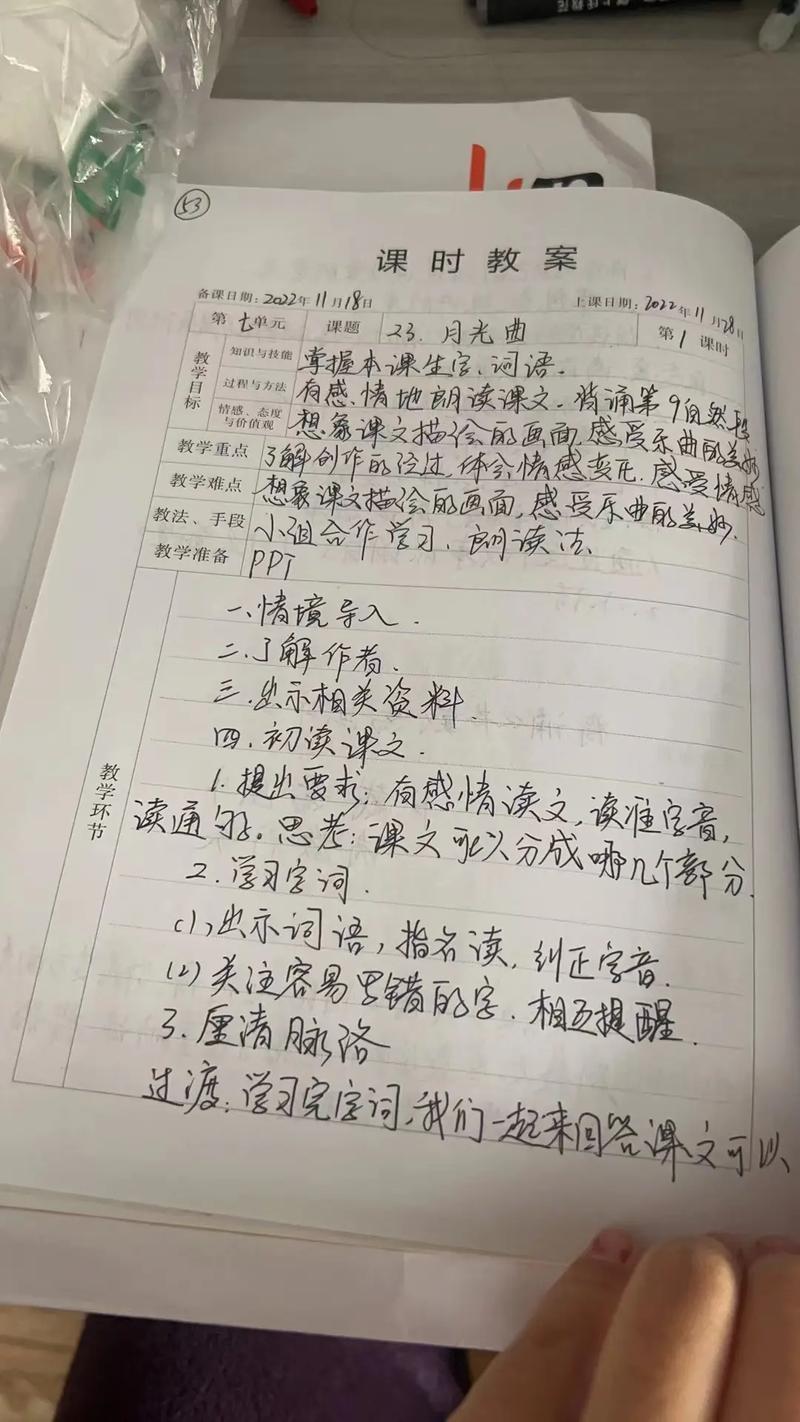 53
课时教案
备课日期：2022年11月18日 上课日期：2022年11月28日
第七单元 课题 23.月光曲 第1课时
教学目标
知识与技能 掌握本课生字、词语.
过程与方法 有感情地朗读课文.背诵第9自然段
情感、态度与价值观 想象课文描绘的画面,感受乐曲的美妙
教学重点 了解创作的经过,体会情感变化.感受情感
教学难点 想象课文描绘的画面,感受乐曲的美妙.
教法、手段 小组合作学习、朗读法.
教学准备 PPT
教学环节
一、情境导入.
二.了解作者.
三.出示相关资料.
四.初读课文.
1.提出要求:有感情读文,读准字音,
读通句子。思考:课文可以分成哪几个部分.
2.学习字词.
(1)出示词语,指名读,纠正字音.
(2)关注容易写错的字.相互提醒.
3.厘清脉络
过渡:学习完字词,我们一起来回答课文可以